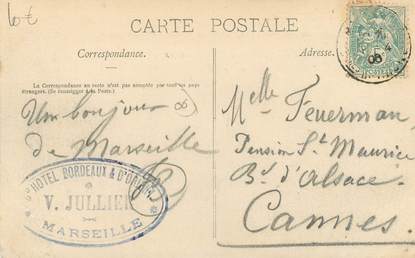 6€
CARTE POSTALE
Correspondance.
Adresse.
La Correspondance au recto n'est pas acceptée par tous les pays
étrangers. (Se renseigner à la Poste.)
Un bonjour
de Marseille
Melle Feuerman
Pension St Maurice
Bd d'Alsace
Cannes.
HOTEL BORDEAUX & D'ORIENT
V. JULLIEN
MARSEILLE